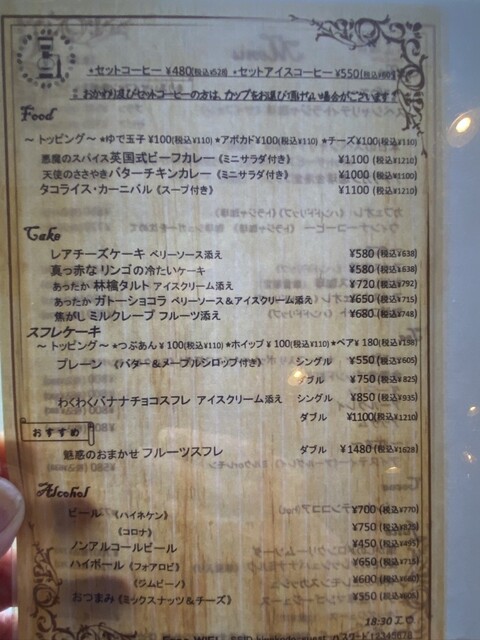 ★セットコーヒー ¥480(税込¥528) ★セットアイスコーヒー ¥550(税込¥605)
Food
～トッピング～ ★ゆで玉子 ¥100(税込¥110) ★アボカド¥100(税込¥110) ★チーズ¥100(税込¥110)
悪魔のスパイス 英国式ビーフカレー（ミニサラダ付き） ¥1100 (税込¥1210)
天使のささやき バターチキンカレー（ミニサラダ付き） ¥1000 (税込¥1100)
タコライス・カーニバル（スープ付き） ¥1100 (税込¥1210)
Cake
レアチーズケーキ ベリーソース添え ¥580 (税込¥638)
真っ赤な リンゴの冷たいケーキ ¥580 (税込¥638)
あったか 林檎タルト アイスクリーム添え ¥720 (税込¥792)
あったか ガトーショコラ ベリーソース＆アイスクリーム添え ¥650 (税込¥715)
焦がし ミルクレープ フルーツ添え ¥680 (税込¥748)
スフレケーキ
～トッピング～ ★つぶあん ¥100(税込¥110) ★ホイップ ¥100(税込¥110) ★ベア¥180(税込¥198)
プレーン 《バター＆メープルシロップ付き》 シングル ¥550 (税込¥605)
ダブル ¥750 (税込¥825)
わくわくバナナチョコスフレ アイスクリーム添え シングル ¥850 (税込¥935)
ダブル ¥1100(税込¥1210)
おすすめ
魅惑のおまかせ フルーツスフレ ダブル ¥1480 (税込¥1628)
Alcohol
ビール 《ハイネケン》 ¥700 (税込¥770)
《コロナ》 ¥750 (税込¥825)
ノンアルコールビール ¥450 (税込¥495)
ハイボール《フォアロゼ》 ¥650 (税込¥715)
《ジムビーノ》 ¥600 (税込¥660)
おつまみ《ミックスナッツ＆チーズ》 ¥550 (税込¥605)